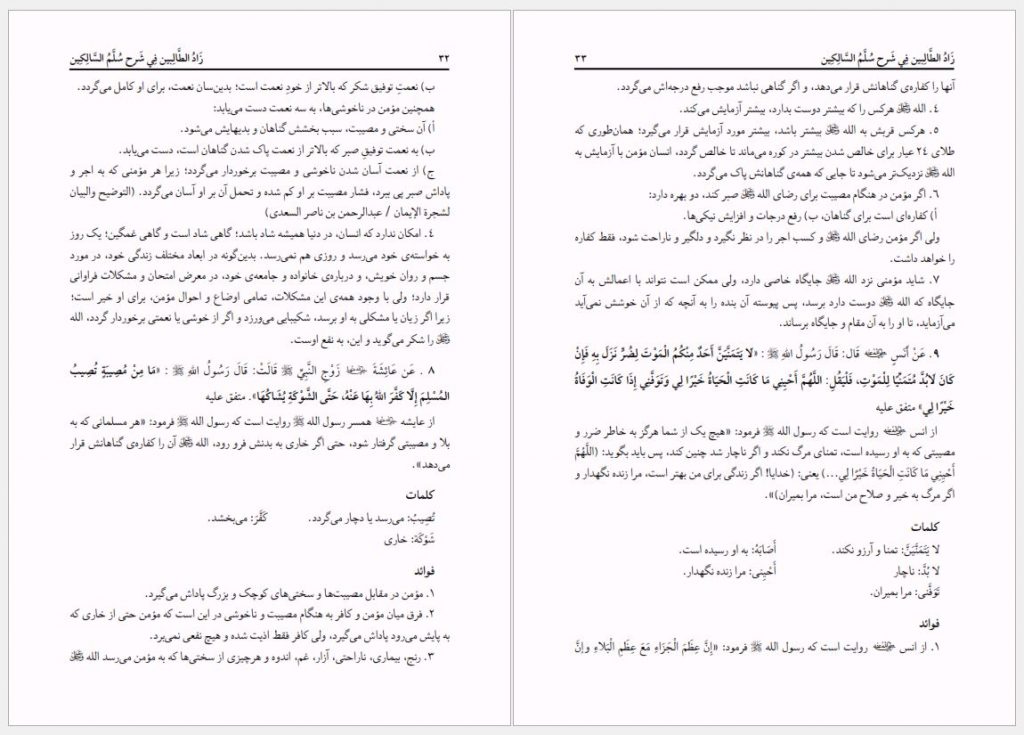 زَادُ الطَّالِبِین فِي شَرحِ سُلَّمُ السَّالِکِین ۳۲
ب) نعمتِ توفیق شکر که بالاتر از خودِ نعمت است؛ بدین‌سان نعمت، برای او کامل می‌گردد.
همچنین مؤمن در ناخوشی‌ها، به سه نعمت دست می‌یابد:
أ) آن سختی و مصیبت، سبب بخشش گناهان و بدیهایش می‌شود.
ب) به نعمت توفیقِ صبر که بالاتر از نعمت پاک شدن گناهان است، دست می‌یابد.
ج) از نعمت آسان شدن ناخوشی و مصیبت برخوردار می‌گردد؛ زیرا هر مؤمنی که به اجر و
پاداش صبر پی ببرد، فشار مصیبت بر او کم شده و تحمل آن بر او آسان می‌گردد. (التوضیح والبیان
لشجرة الإیمان / عبدالرحمن بن ناصر السعدی)
٤. امکان ندارد که انسان، در دنیا همیشه شاد باشد؛ گاهی شاد است و گاهی غمگین؛ یک روز
به خواسته‌ی خود می‌رسد و روزی هم نمی‌رسد. بدین‌گونه در ابعاد مختلف زندگی خود، در مورد
جسم و روان خویش، و درباره‌ی خانواده و جامعه‌ی خود، در معرض امتحان و مشکلات فراوانی
قرار دارد؛ ولی با وجود همه‌ی این مشکلات، تمامی اوضاع و احوال مؤمن، برای او خیر است؛
زیرا اگر زیان یا مشکلی به او برسد، شکیبایی می‌ورزد و اگر از خوشی یا نعمتی برخوردار گردد، الله
ﷻ را شکر می‌گوید و این، به نفع اوست.
۸ . عَن عَائِشَةَ زَوْجِ النَّبِيِّ ﷺ قَالَتْ: قَالَ رَسُولُ اللهِ ﷺ : «مَا مِنْ مُصِيبَةٍ تُصِيبُ
المُسْلِمَ إِلَّا كَفَّرَ اللهُ بِهَا عَنْهُ، حَتَّى الشَّوْكَةِ يُشَاكُهَا». متفق علیه
از عایشه همسر رسول الله ﷺ روایت است که رسول الله ﷺ فرمود: «هر مسلمانی که به
بلا و مصیبتی گرفتار شود، حتی اگر خاری به بدنش فرو رود، الله ﷻ آن را کفاره‌ی گناهانش قرار
می‌دهد».
کلمات
تُصِیبُ: می‌رسد یا دچار می‌گردد. کَفَّرَ: می‌بخشد.
شَوْکَة: خاری
فوائد
۱. مؤمن در مقابل مصیبت‌ها و سختی‌های کوچک و بزرگ پاداش می‌گیرد.
۲. فرق میان مؤمن و کافر به هنگام مصیبت و ناخوشی در این است که مؤمن حتی از خاری که
به پایش می‌رود پاداش می‌گیرد، ولی کافر فقط اذیت شده و هیچ نفعی نمی‌برد.
۳. رنج، بیماری، ناراحتی، آزار، غم، اندوه و هرچیزی از سختی‌ها که به مؤمن می‌رسد الله ﷻ
زَادُ الطَّالِبِین فِي شَرحِ سُلَّمُ السَّالِکِین ۳۳
آنها را کفاره‌ی گناهانش قرار می‌دهد، و اگر گناهی نباشد موجب رفع درجه‌اش می‌گردد.
٤. الله ﷻ هرکس را که بیشتر دوست بدارد، بیشتر آزمایش می‌کند.
٥. هرکس قربش به الله ﷻ بیشتر باشد، بیشتر مورد آزمایش قرار می‌گیرد؛ همان‌طوری که
طلای ٢٤ عیار برای خالص شدن بیشتر در کوره می‌ماند تا خالص گردد، انسان مؤمن با آزمایش به
الله ﷻ نزدیک‌تر می‌شود تا جایی که همه‌ی گناهانش پاک می‌گردد.
٦. اگر مؤمن در هنگام مصیبت برای رضای الله ﷻ صبر کند، دو بهره دارد:
أ) کفاره‌ای است برای گناهان، ب) رفع درجات و افزایش نیکی‌ها.
ولی اگر مؤمن رضای الله ﷻ و کسب اجر را در نظر نگیرد و دلگیر و ناراحت شود، فقط کفاره
را خواهد داشت.
۷. شاید مؤمنی نزد الله ﷻ جایگاه خاصی دارد، ولی ممکن است نتواند با اعمالش به آن
جایگاه که الله ﷻ دوست دارد برسد، پس پیوسته آن بنده را به آنچه که از آن خوشش نمی‌آید
می‌آزماید، تا او را به آن مقام و جایگاه برساند.
۹. عَنْ أَنَسٍ قَال: قَالَ رَسُولُ اللهِ ﷺ : «لا يَتَمَنَّيَنَّ أَحَدٌ مِنْكُمُ الْمَوْتَ لِضُرٍّ نَزَلَ بِهِ فَإِنْ
كَانَ لَابُدَّ مُتَمَنِّيًا لِلْمَوْتِ، فَلْيَقُلِ: اللَّهُمَّ أَحْيِنِي مَا كَانَتِ الْحَيَاةُ خَيْرًا لِي وَتَوَفَّنِي إِذَا كَانَتِ الْوَفَاةُ
خَيْرًا لِي» متفق علیه
از انس روایت است که رسول الله ﷺ فرمود: «هیچ یک از شما هرگز به خاطر ضرر و
مصیبتی که به او رسیده است، تمنای مرگ نکند و اگر ناچار شد چنین کند، پس باید بگوید: (اللَّهُمَّ
أَحْيِنِي مَا كَانَتِ الْحَيَاةُ خَيْرًا لِي...) یعنی: (خدایا! اگر زندگی برای من بهتر است، مرا زنده نگهدار و
اگر مرگ به خیر و صلاح من است، مرا بمیران)».
کلمات
لا یَتَمَنَّیَنَّ: تمنا و آرزو نکند. أَصَابَهُ: به او رسیده است.
لا بُدَّ: ناچار أَحْیِنِی: مرا زنده نگهدار.
تَوَفَّنِی: مرا بمیران.
فوائد
۱. از انس روایت است که رسول الله ﷺ فرمود: «إِنَّ عِظَمَ الْجَزَاءِ مَعَ عِظَمِ الْبَلَاءِ وإِنَّ